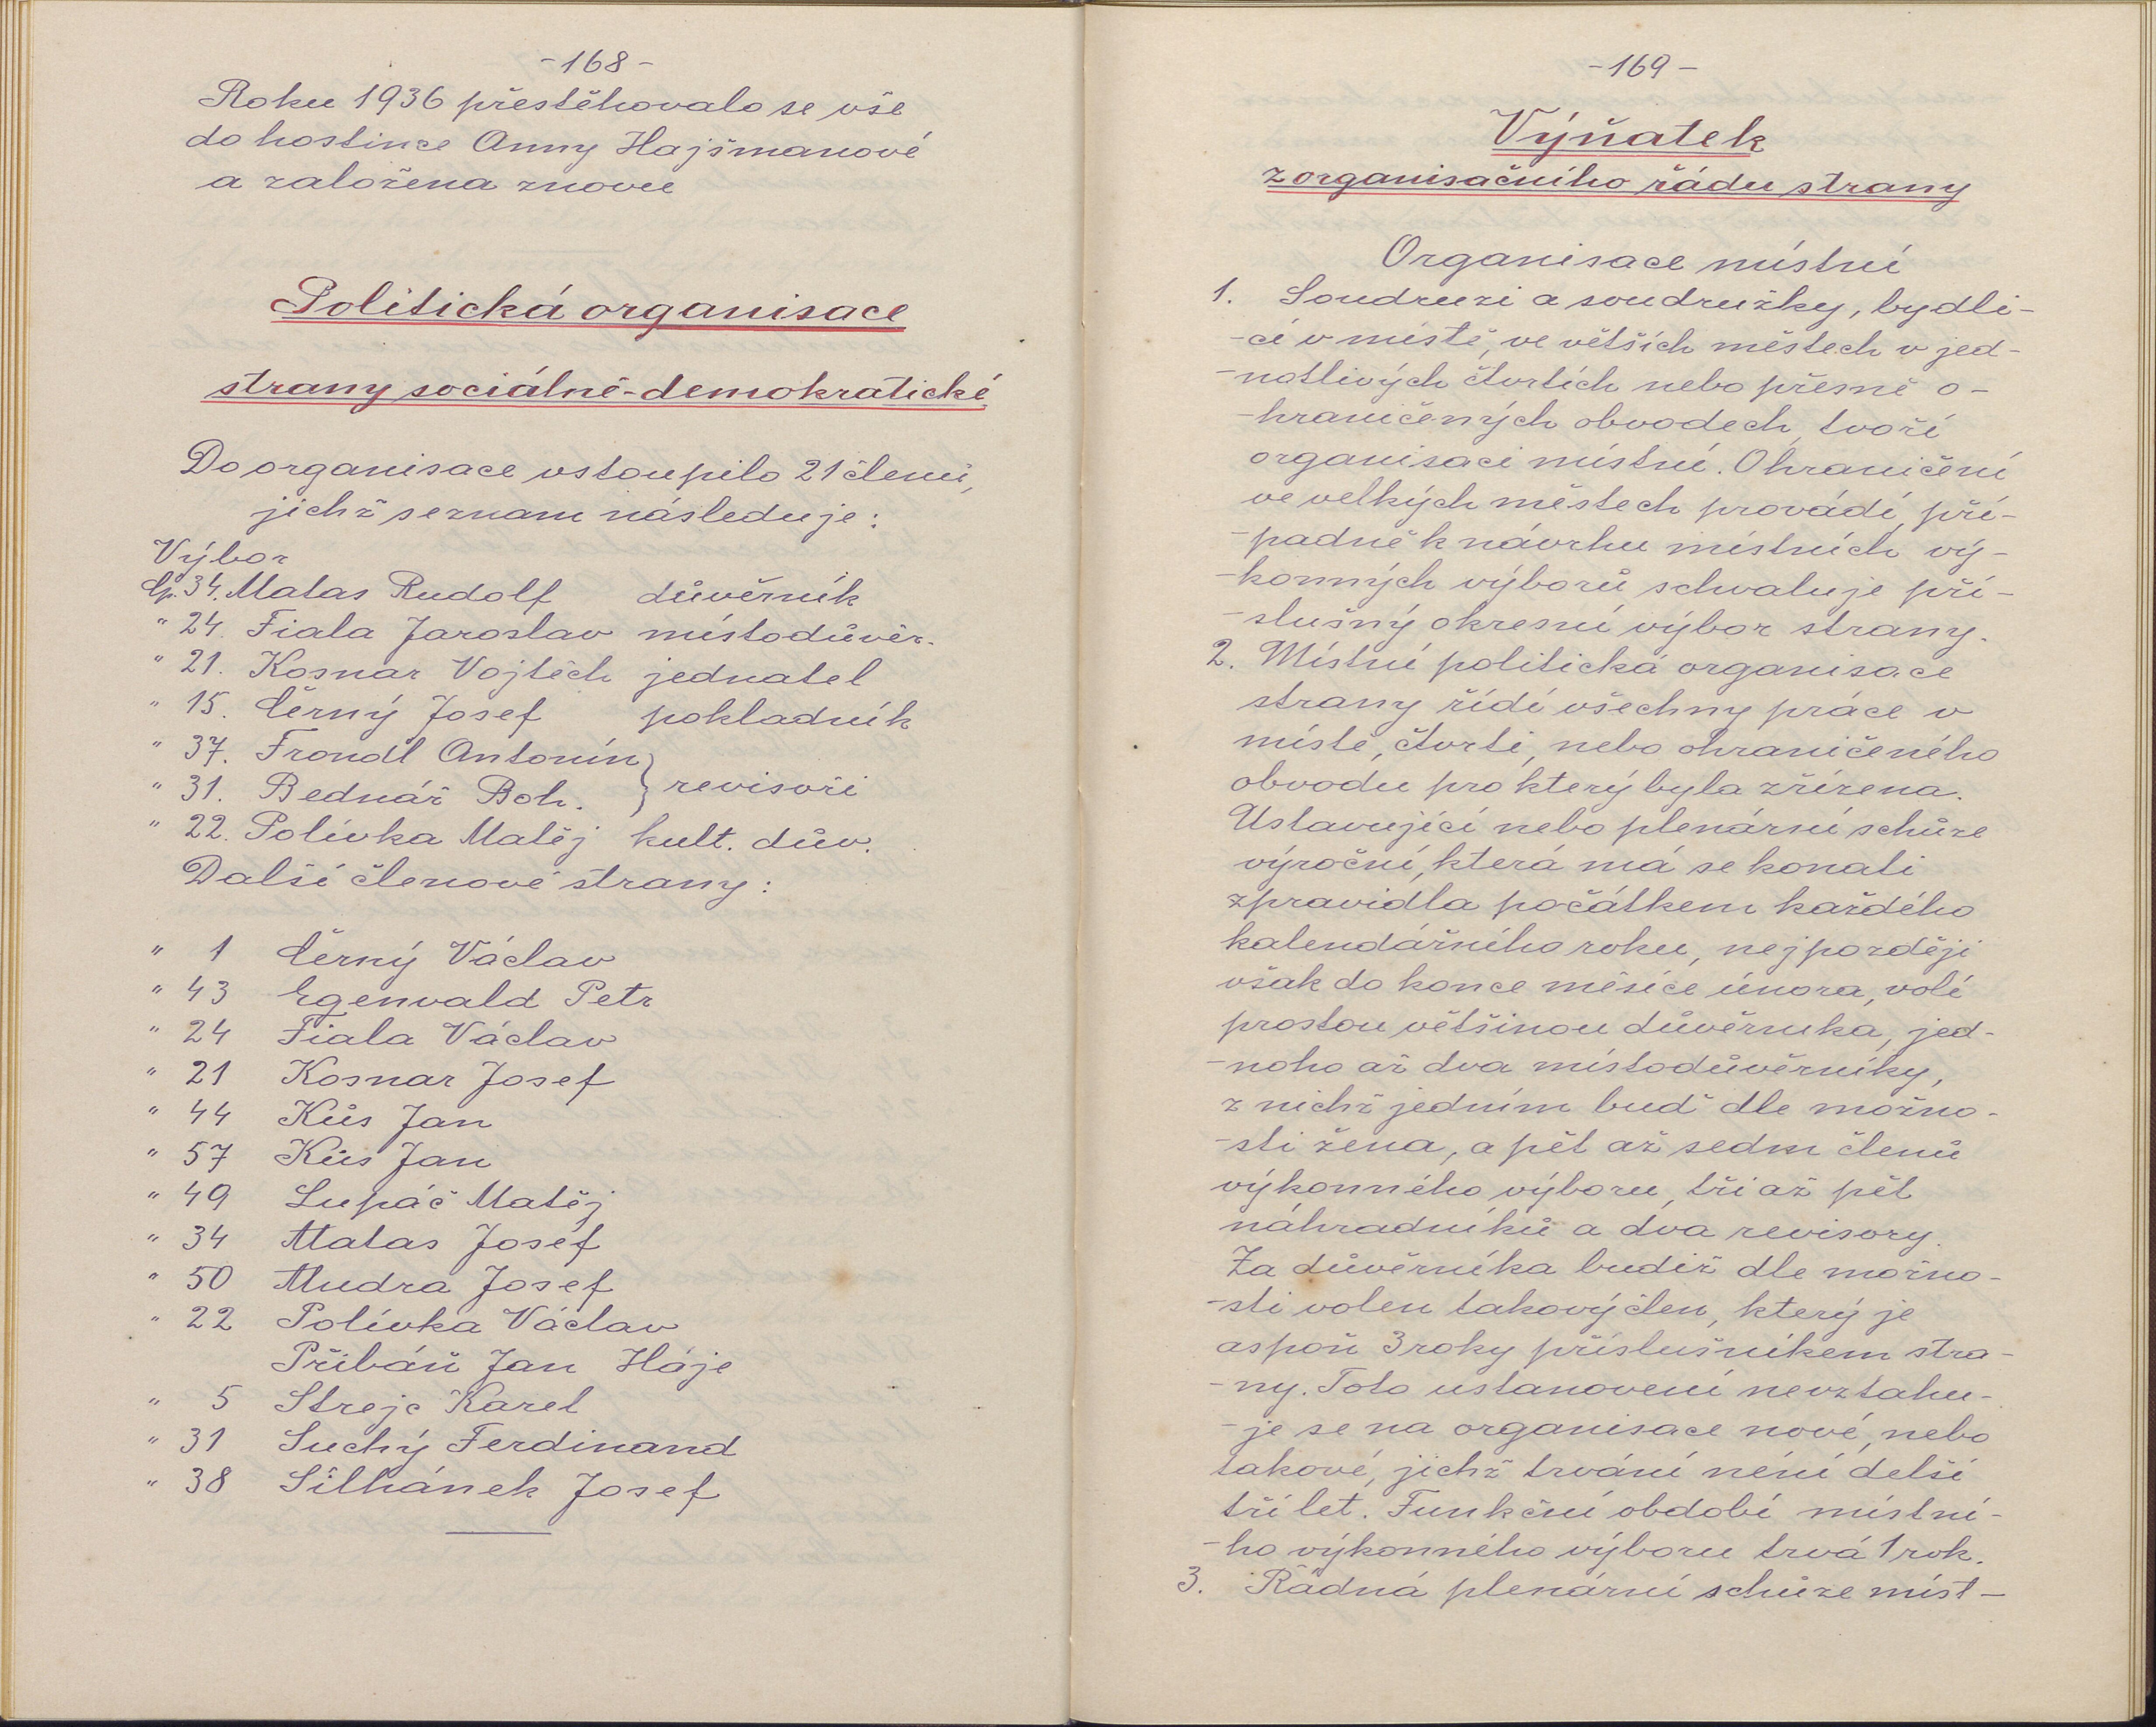 -168-
Roku 1936 přestěhovalo se vše
do hostince Anny Hajšmanové
a založena znovu
Politická organisace
strany sociálně-demokratické
Do organisace vstoupilo 21 členů,
jichž seznam následuje:
Výbor
Čp. 34. Matas Rudolf důvěrník
" 24. Fiala Jaroslav místodůvěr.
" 21. Kosnar Vojtěch jednatel
" 15. Černý Josef pokladník
" 37. Frondl Antonín
" 31. Bednář Boh. } revisoři
" 22. Polívka Matěj kult. dův.
Další členové strany:
" 1 Černý Václav
" 43 Egenvald Petr
" 24 Fiala Václav
" 21 Kosnar Josef
" 44 Kůs Jan
" 57 Kůs Jan
" 49 Lupáč Matěj
" 34 Matas Josef
" 50 Mudra Josef
" 22 Polívka Václav
Přibáň Jan Háje
" 5 Strejc Karel
" 31 Suchý Ferdinand
" 38 Šilhánek Josef
-169-
Výňatek
z organisačního řádu strany
Organisace místní
1. Soudruzi a soudružky, bydlí-
-cí v místě, ve větších městech v jed-
-notlivých čtvrtích nebo přesně o-
-hraničených obvodech, tvoří
organisaci místní. Ohraničení
ve velkých městech provádí, pří-
-padně k návrhu místních vý-
-konných výborů schvaluje pří-
-slušný okresní výbor strany.
2. Místní politická organisace
strany řídí všechny práce v
místě, čtvrti, nebo ohraničeného
obvodu pro který byla zřízena.
Ustavující nebo plenární schůze
výroční, která má se konati
zpravidla počátkem každého
kalendářního roku, nejpozději
však do konce měsíce února, volí
prostou většinou důvěrníka, jed-
-noho až dva místodůvěrníky,
z nichž jedním buď dle možno-
-sti žena, a pět až sedm členů
výkonného výboru, tři až pět
náhradníků a dva revisory.
Za důvěrníka budiž dle možno-
-sti volen takový člen, který je
aspoň 3 roky příslušníkem stra-
-ny. Toto ustanovení nevztahu-
-je se na organisace nové, nebo
takové, jichž trvání není delší
tří let. Funkční období místní-
-ho výkonného výboru trvá 1 rok.
3. Řádná plenární schůze míst-